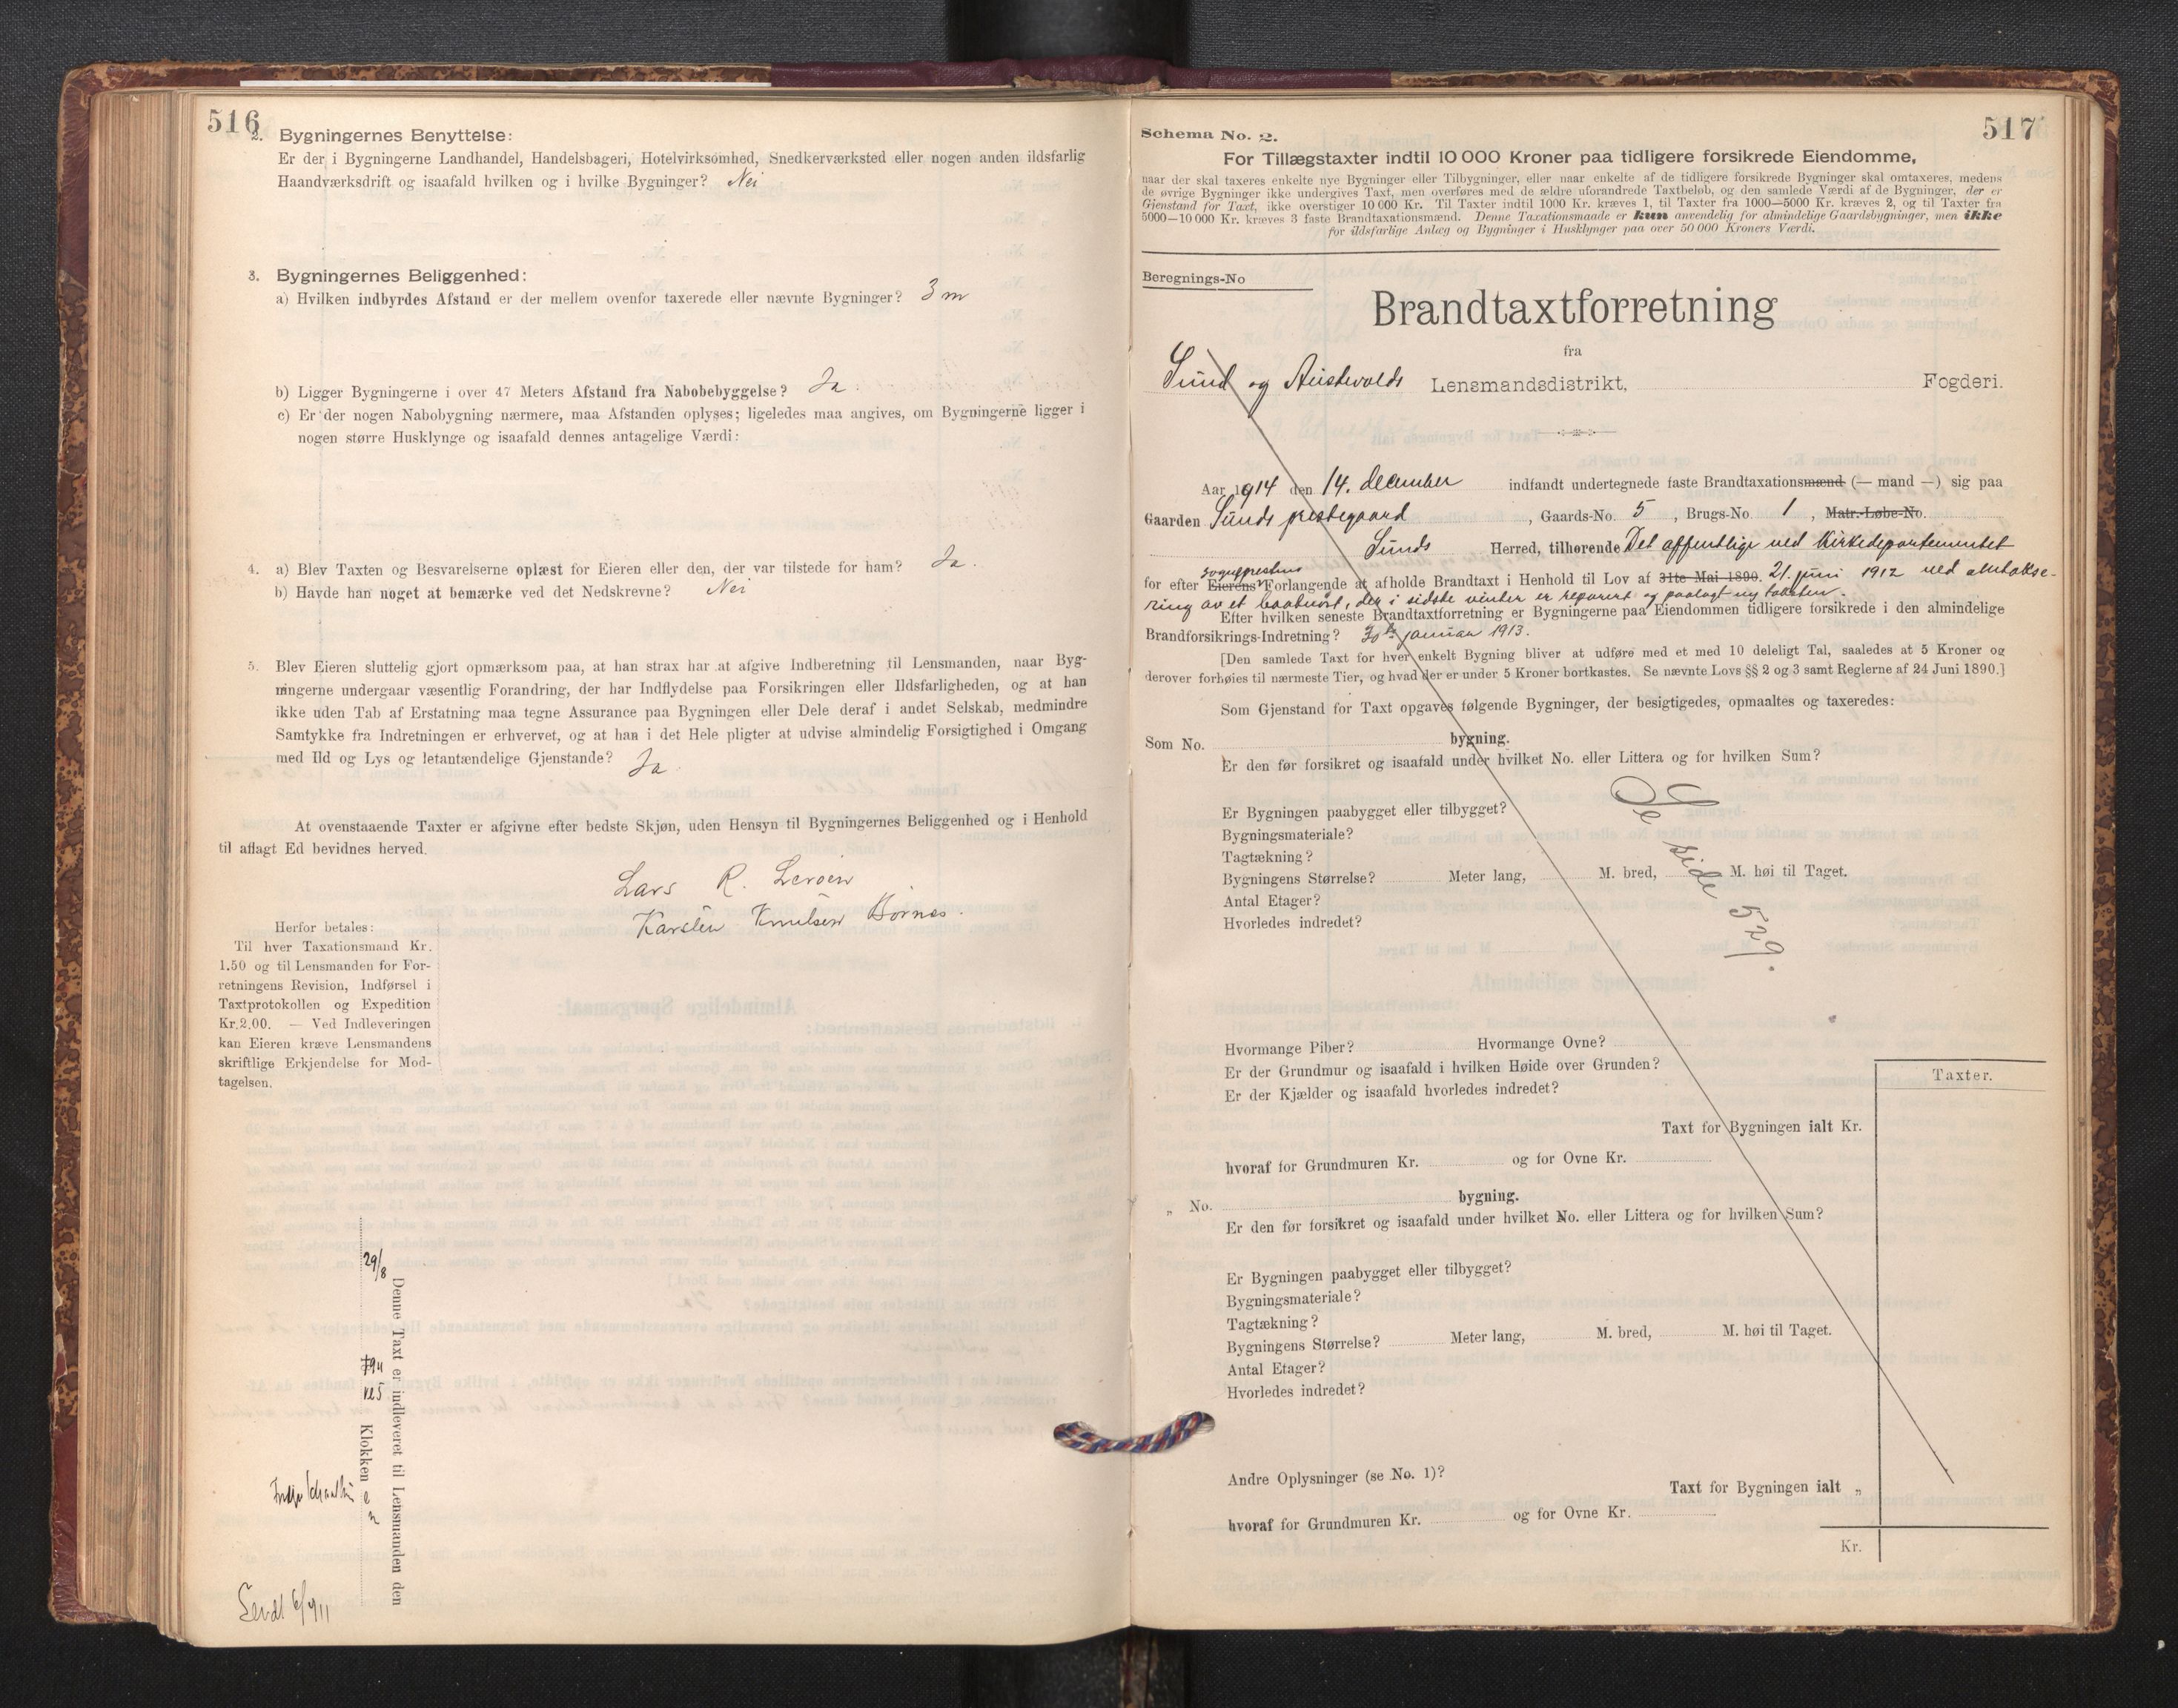 516
2. Bygningernes Benyttelse:
Er der i Bygningerne Landhandel, Handelsbageri, Hotelvirksomhed, Snedkerværksted eller nogen anden ildsfarlig
Haandværksdrift og isaafald hvilken og i hvilke Bygninger? Nei
3. Bygningernes Beliggenhed:
a) Hvilken indbyrdes Afstand er der mellem ovenfor taxerede eller nævnte Bygninger? 3 m
b) Ligger Bygningerne i over 47 Meters Afstand fra Nabobebyggelse? Ja
c) Er der nogen Nabobygning nærmere, maa Afstanden oplyses; ligeledes maa angives, om Bygningerne ligger i
nogen større Husklynge og isaafald dennes antagelige Værdi:
4. a) Blev Taxten og Besvarelserne oplæst for Eieren eller den, der var tilstede for ham? Ja.
b) Havde han noget at bemærke ved det Nedskrevne? Nei
5. Blev Eieren sluttelig gjort opmærksom paa, at han strax har at afgive Indberetning til Lensmanden, naar Byg-
ningerne undergaar væsentlig Forandring, der har Indflydelse paa Forsikringen eller Ildsfarligheden, og at han
ikke uden Tab af Erstatning maa tegne Assurance paa Bygningen eller Dele deraf i andet Selskab, medmindre
Samtykke fra Indretningen er erhvervet, og at han i det Hele pligter at udvise almindelig Forsigtighed i Omgang
med Ild og Lys og letantændelige Gjenstande? Ja
At ovenstaaende Taxter er afgivne efter bedste Skjøn, uden Hensyn til Bygningernes Beliggenhed og i Henhold
til aflagt Ed bevidnes herved.
Lars R. Lerøen
Karsten Knutsen Børnes.
Herfor betales:
Til hver Taxationsmand Kr.
1.50 og til Lensmanden for For-
retningens Revision, Indførsel i
Taxtprotokollen og Expedition
Kr. 2.00. — Ved Indleveringen
kan Eieren kræve Lensmandens
skriftlige Erkjendelse for Mod-
tagelsen.
Denne Taxt er indleveret til Lensmanden den
29/8 Klokken
Sendt 6/9 11
517
Schema No. 2.
For Tillægstaxter indtil 10 000 Kroner paa tidligere forsikrede Eiendomme,
naar der skal taxeres enkelte nye Bygninger eller Tilbygninger, eller naar enkelte af de tidligere forsikrede Bygninger skal omtaxeres, medens
de øvrige Bygninger ikke undergives Taxt, men overføres med de ældre uforandrede Taxtbeløb, og den samlede Værdi af de Bygninger, der er
Gjenstand for Taxt, ikke overstiger 10 000 Kr. Til Taxter indtil 1000 Kr. kræves 1, til Taxter fra 1000—5000 Kr. kræves 2, og til Taxter fra
5000—10 000 Kr. kræves 3 faste Brandtaxationsmænd. Denne Taxationsmaade er kun anvendelig for almindelige Gaardsbygninger, men ikke
for ildsfarlige Anlæg og Bygninger i Husklynger paa over 50 000 Kroners Værdi.
Beregnings-No
Brandtaxtforretning
fra
Sund og Austevolds Lensmandsdistrikt, Fogderi.
Aar 1914 den 14. december indfandt undertegnede faste Brandtaxationsmænd (— mand —) sig paa
Gaarden Sunds prestegaard, Gaards-No. 5, Brugs-No. 1, Matr.-Løbe-No.
Sunds Herred, tilhørende Det offentlige ved Kirkedepartementet
sogneprestens
for efter Eierens Forlangende at afholde Brandtaxt i Henhold til Lov af 31te Mai 1890. 21. juni 1912 ved omtakse-
ring av et baatnøst, der i sidste vinter er reparert og paalagt ny taksten.
Efter hvilken seneste Brandtaxtforretning er Bygningerne paa Eiendommen tidligere forsikrede i den almindelige
Brandforsikrings-Indretning? 30te januar 1913.
[Den samlede Taxt for hver enkelt Bygning bliver at udføre med et med 10 deleligt Tal, saaledes at 5 Kroner og
derover forhøies til nærmeste Tier, og hvad der er under 5 Kroner bortkastes. Se nævnte Lovs §§ 2 og 3 samt Reglerne af 24 Juni 1890.]
Som Gjenstand for Taxt opgaves følgende Bygninger, der besigtigedes, opmaaltes og taxeredes:
Som No. bygning.
Er den før forsikret og isaafald under hvilket No. eller Littera og for hvilken Sum?
Se side 529.
Er Bygningen paabygget eller tilbygget?
Bygningsmateriale?
Tagtækning?
Bygningens Størrelse? Meter lang, M. bred, M. høi til Taget.
Antal Etager?
Hvorledes indredet?
Hvormange Piber? Hvormange Ovne?
Er der Grundmur og isaafald i hvilken Høide over Grunden?
Er der Kjælder og isaafald hvorledes indredet?
Taxter.
Taxt for Bygningen ialt Kr.
hvoraf for Grundmuren Kr. og for Ovne Kr.
„ No. bygning.
Er den før forsikret og isaafald under hvilket No. eller Littera og for hvilken Sum?
Er Bygningen paabygget eller tilbygget?
Bygningsmateriale?
Tagtækning?
Bygningens Størrelse? Meter lang, M. bred, M. høi til Taget.
Antal Etager?
Hvorledes indredet?
Andre Oplysninger (se No. 1)?
Taxt for Bygningen ialt „
hvoraf for Grundmuren Kr. og for Ovne Kr.
Kr.